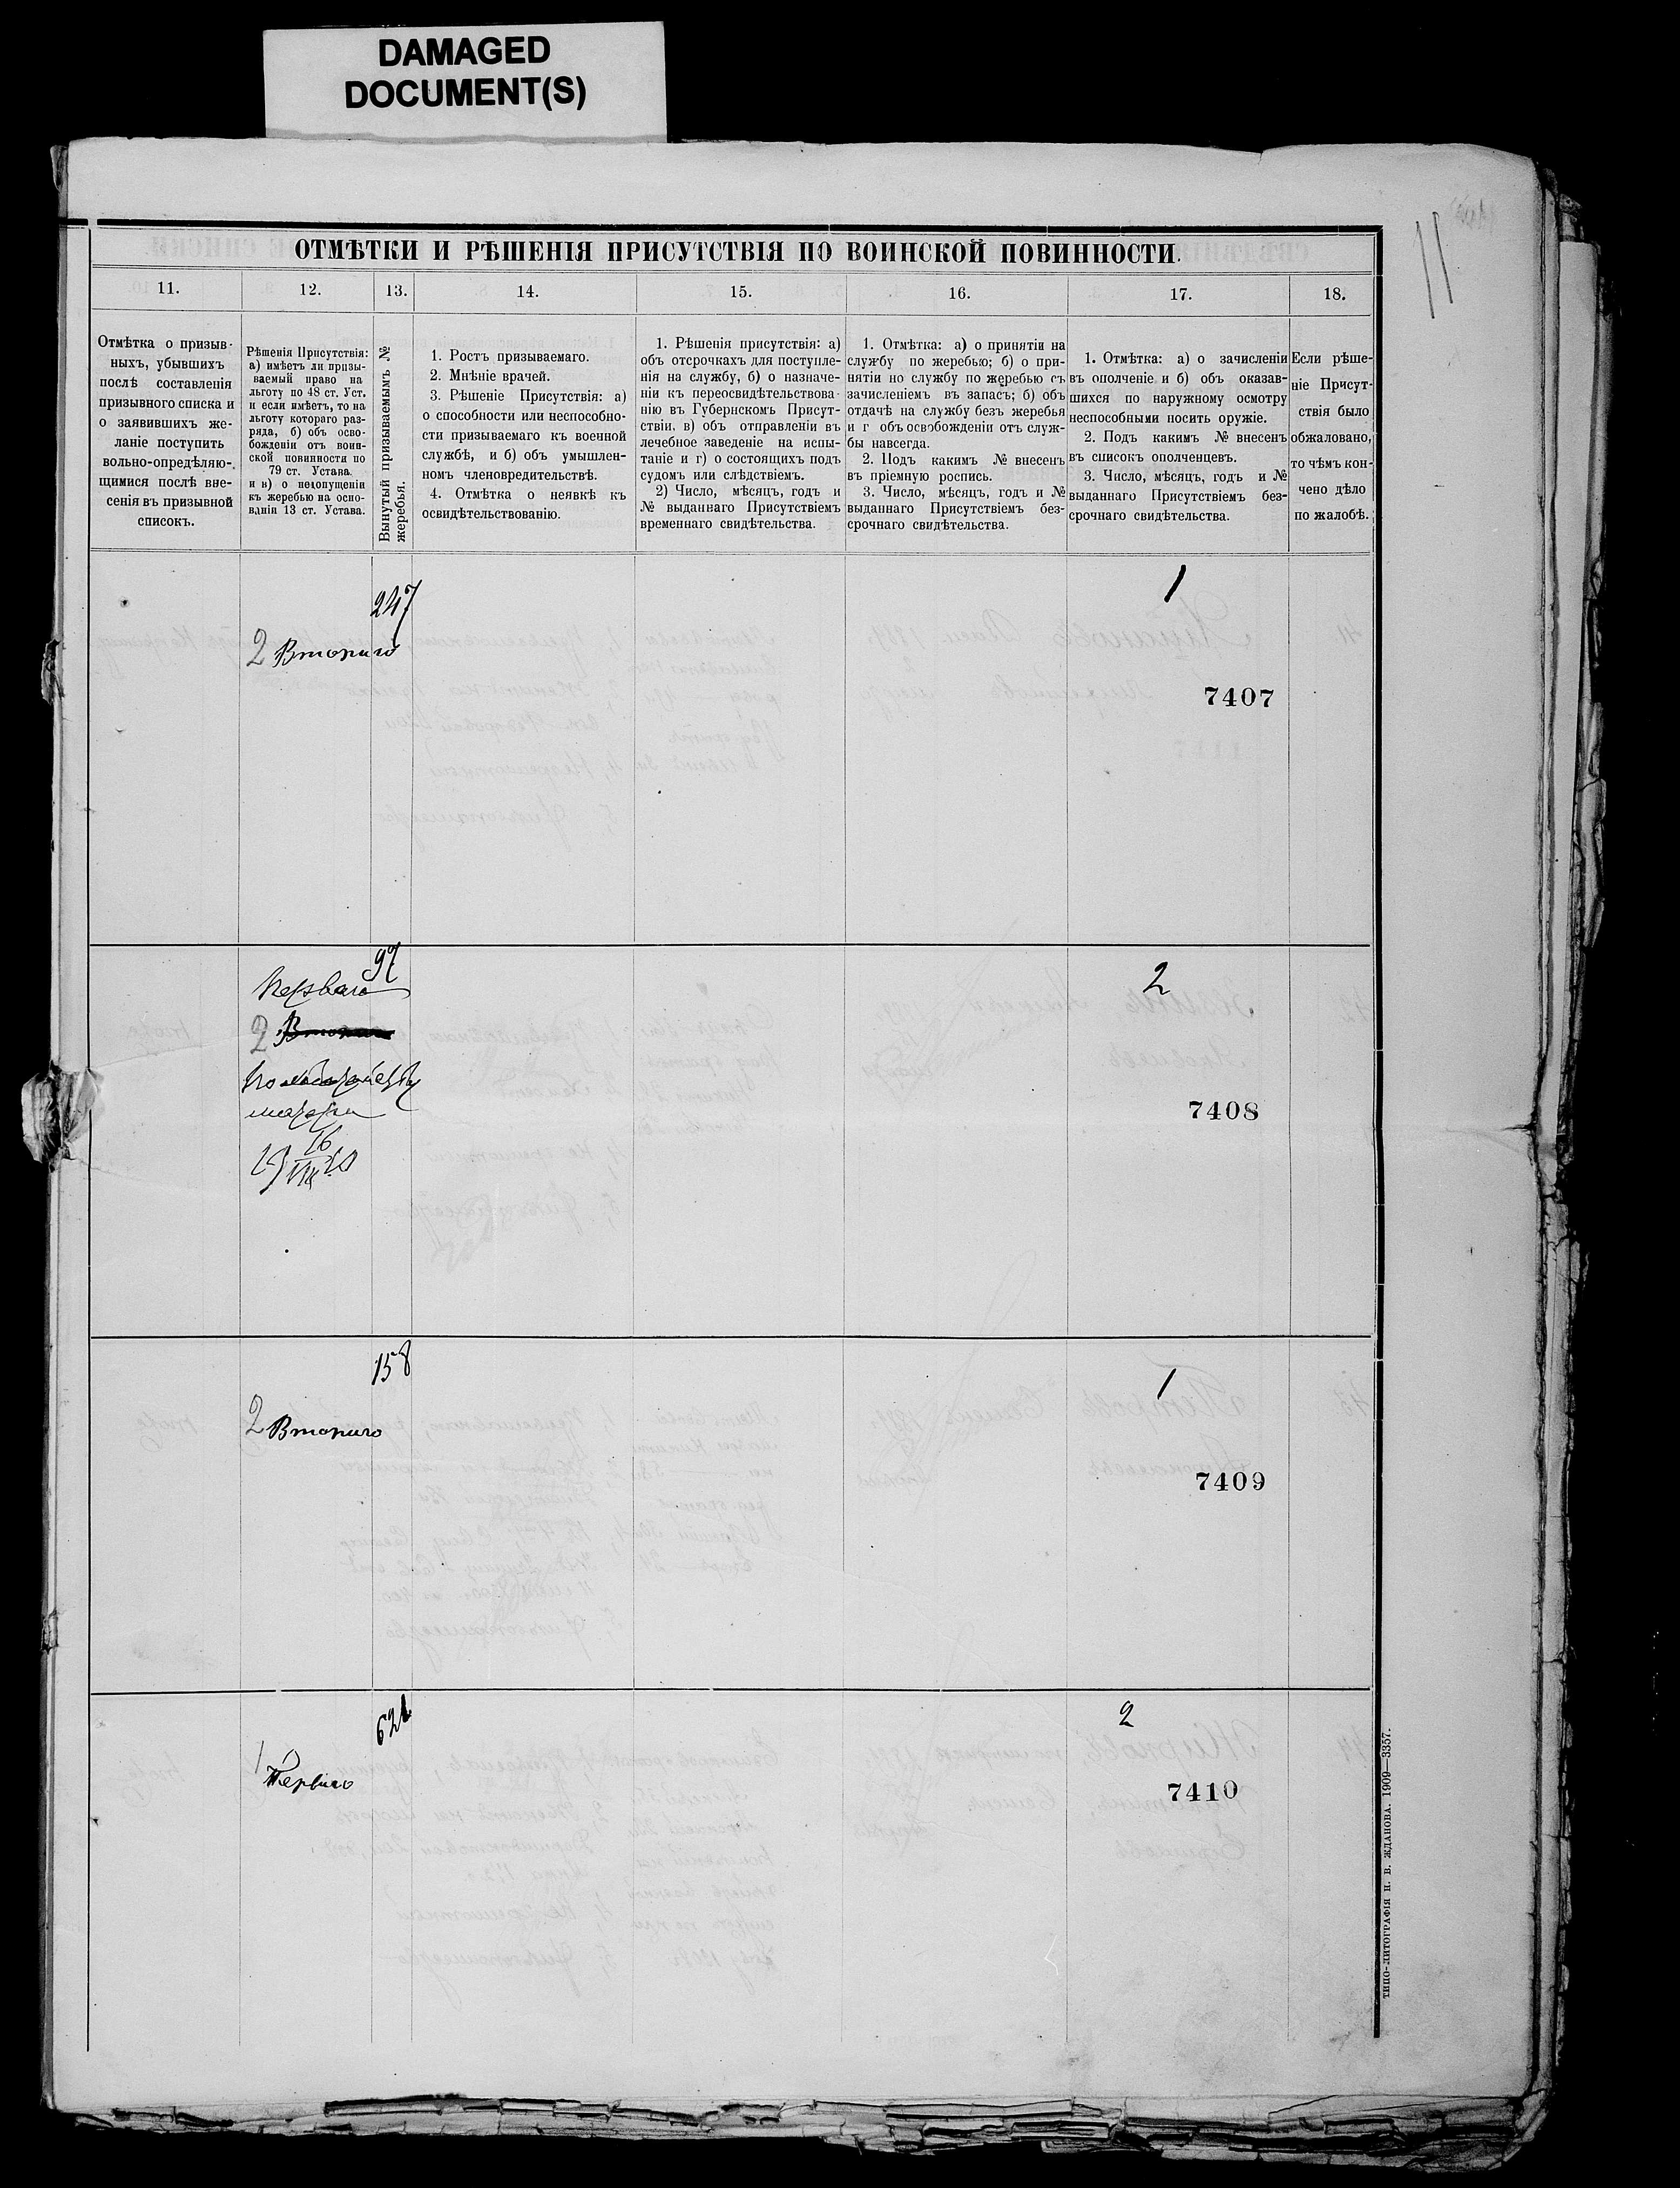 DAMAGED
DOCUMENT(S)
11
ОТМѢТКИ И РѢШЕНІЯ ПРИСУТСТВІЯ ПО ВОИНСКОЙ ПОВИННОСТИ.
11.
12.
13.
14.
15.
16.
17.
18.
Отмѣтка о призыв-
ныхъ, убывшихъ
послѣ составленія
призывного списка и
о заявившихъ же-
ланіе поступить
вольно-опредѣляю-
щимися послѣ вне-
сенія въ призывной
списокъ.
Рѣшенія Присутствія:
а) имѣетъ ли призы-
ваемый право на
льготу по 48 ст. Уст.
и если имѣетъ, то на
льготу котораго раз-
ряда, б) объ осво-
божденіи отъ воин-
ской повинности по
79 ст. Устава.
и в) о недопущеніи
къ жеребью на осно-
ваніи 13 ст. Устава.
Вынутый призываемымъ №
жеребья.
1. Ростъ призываемаго.
2. Мнѣніе врачей.
3. Рѣшеніе Присутствія: а)
о способности или неспособно-
сти призываемаго къ военной
службѣ, и б) объ умышлен-
номъ членовредительствѣ.
4. Отмѣтка о неявкѣ къ
освидѣтельствованію.
1. Рѣшенія присутствія: а)
объ отсрочкахъ для поступле-
нія на службу, б) о назначе-
ніи къ переосвидѣтельствова-
нію въ Губернскомъ Присут-
ствіи, в) объ отправленіи въ
лечебное заведеніе на испы-
таніе и г) о состоящихъ подъ
судомъ или слѣдствіемъ.
2) Число, мѣсяцъ, годъ и
№ выданнаго Присутствіемъ
временнаго свидѣтельства.
1. Отмѣтка: а) о принятіи на
службу по жеребью; б) о при-
нятіи но службу по жеребью съ
зачисленіемъ въ запасъ; б) объ
отдачѣ на службу безъ жеребья
и г объ освобожденіи отъ служ-
бы навсегда.
2. Подъ какимъ № внесенъ
въ пріемную роспись.
3. Число, мѣсяцъ, годъ и №
выданнаго Присутствіемъ без-
срочнаго свидѣтельства.
1. Отмѣтка: а) о зачисленіи
въ ополченіе и б) объ оказав-
шихся по наружному осмотру
неспособными носить оружіе.
2. Подъ какимъ № внесенъ
въ списокъ ополченцевъ.
3. Число, мѣсяцъ, годъ и №
выданнаго Присутствіемъ без-
срочнаго свидѣтельства.
Если рѣше-
ніе Присут-
ствія было
обжаловано,
то чѣмъ кон-
чено дѣло
по жалобѣ.
247
1
2 Второго
7407
97
2
Перваго
2 Второго
матери
7408
158
1
2 Второго
7409
621
2
1 Перваго
7410
ТИПО-ЛИТОГРАФІЯ Н. В. ЖДАНОВА. 1909—3357.